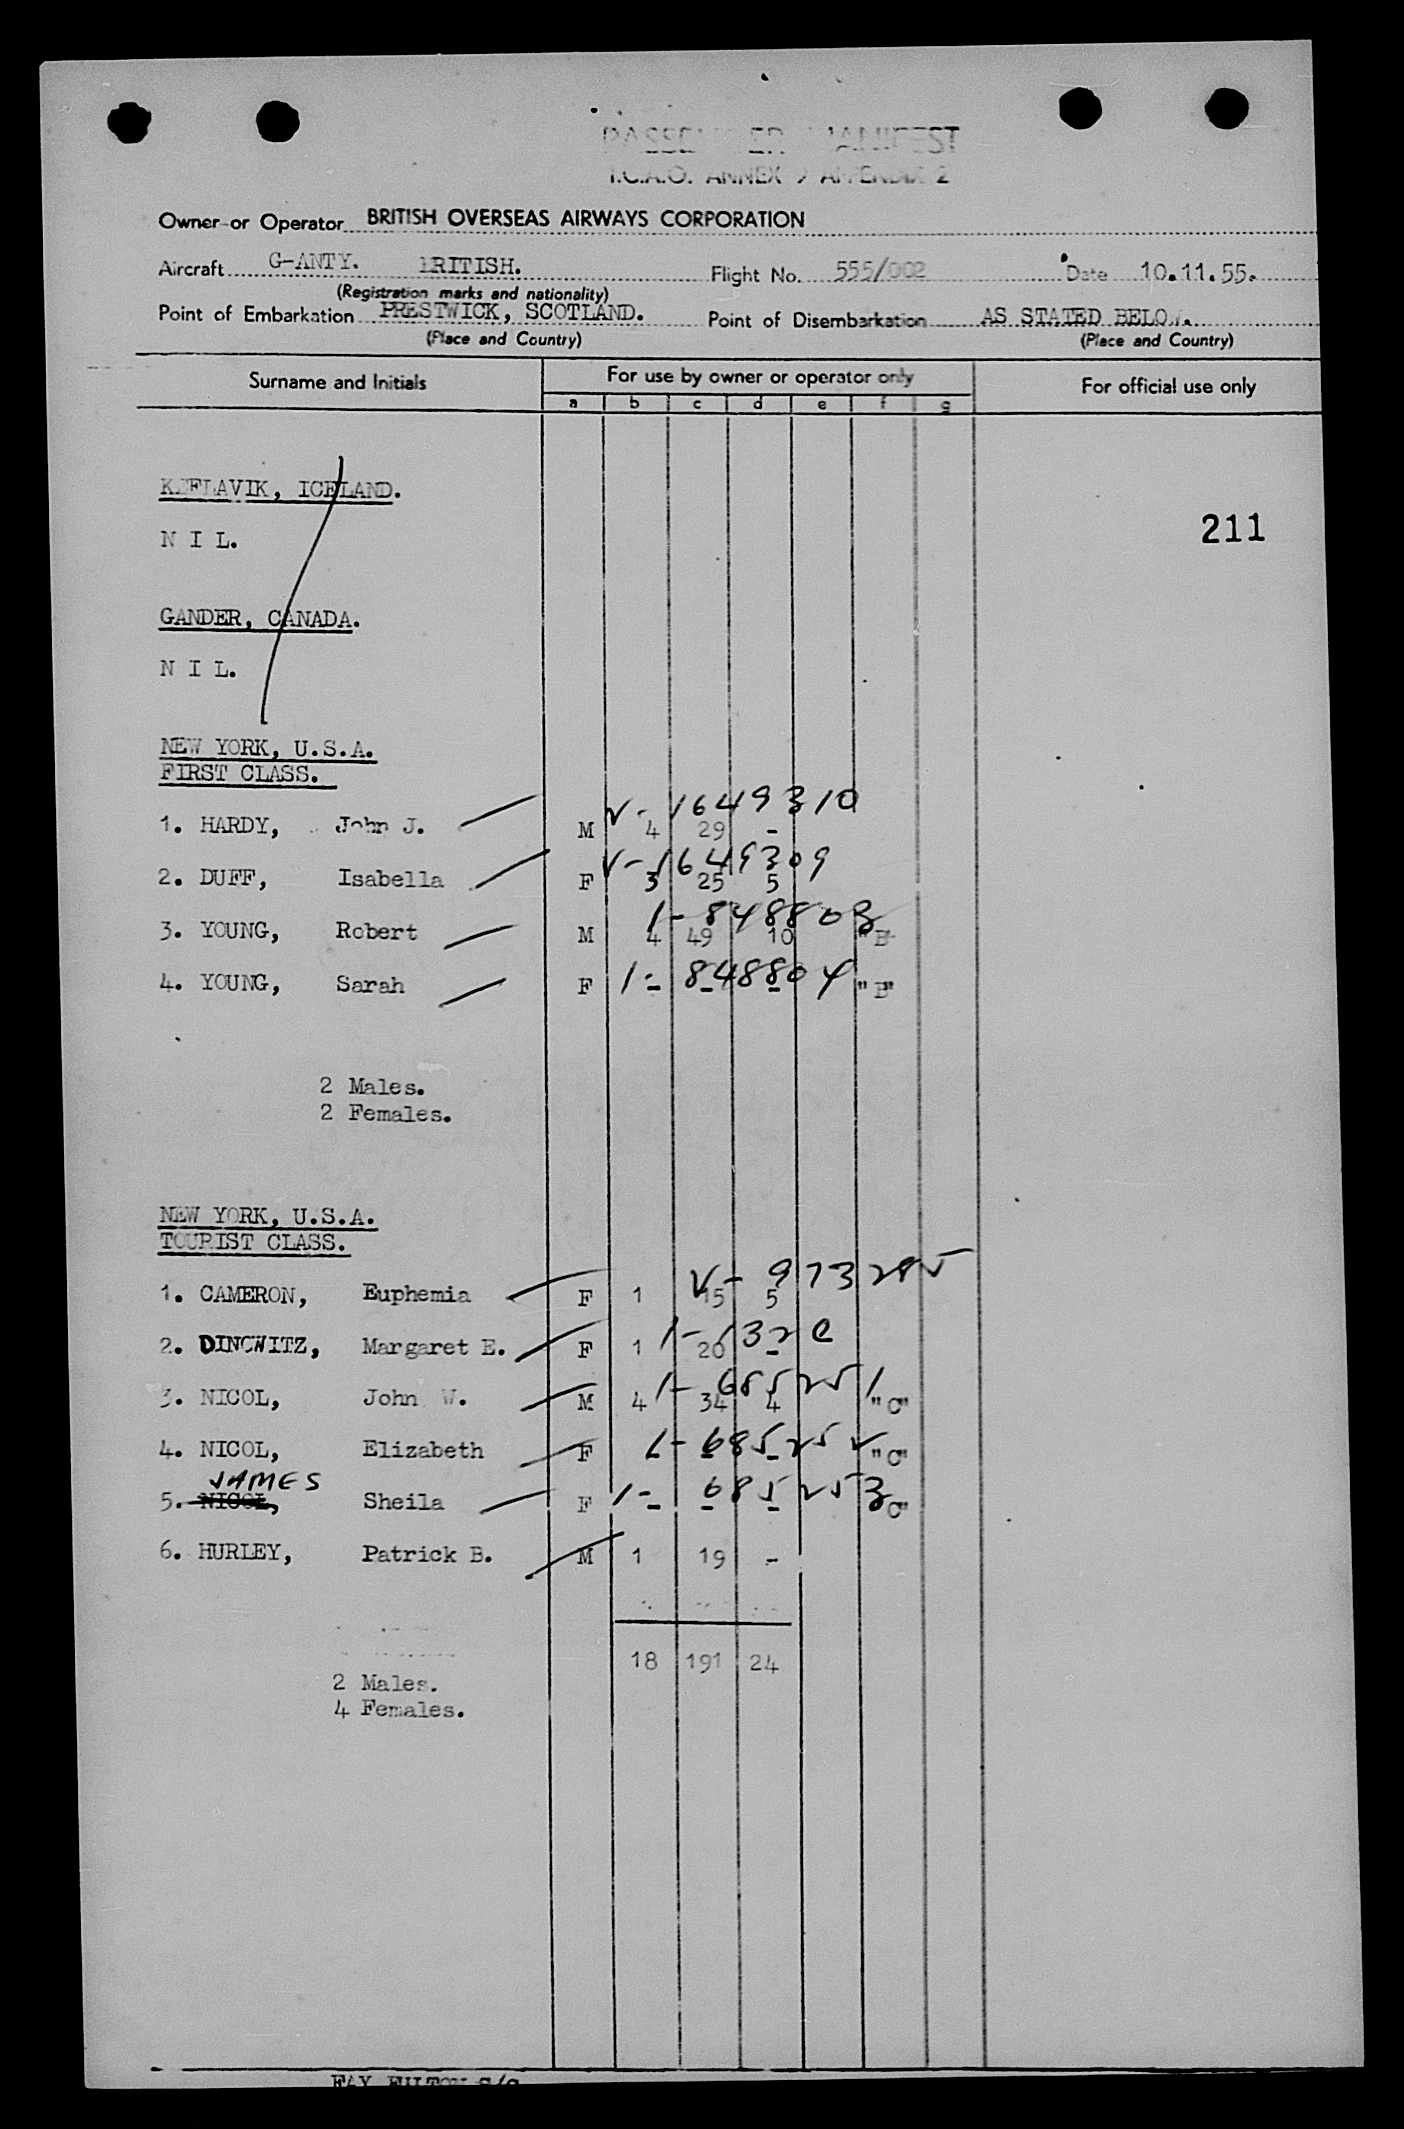 PASSENGER MANIFEST
I.C.A.O. ANNEX 9 APPENDIX 2
Owner or Operator BRITISH OVERSEAS AIRWAYS CORPORATION
Aircraft G-ANTY. BRITISH. Flight No. 555/002 Date 10.11.55.
(Registration marks and nationality)
Point of Embarkation PRESTWICK, SCOTLAND. Point of Disembarkation AS STATED BELOW.
(Place and Country) (Place and Country)
Surname and Initials For use by owner or operator only For official use only
a b c d e f g
KEFLAVIK, ICELAND.
211
N I L.
GANDER, CANADA.
N I L.
NEW YORK, U.S.A.
FIRST CLASS.
V-1649310
1. HARDY, John J. M 4 29 -
V-1649309
2. DUFF, Isabella F 3 25 5
1-848803
3. YOUNG, Robert M 4 49 10 "B"
1-848804
4. YOUNG, Sarah F - - - "B"
2 Males.
2 Females.
NEW YORK, U.S.A.
TOURIST CLASS.
V-973285
1. CAMERON, Euphemia F 1 15 5
2. DINOWITZ, Margaret E. F 1 20 -
1-685251
3. NICOL, John W. M 4 34 4 "C"
1-685252
4. NICOL, Elizabeth F - - - "C"
JAMES
1-685253
5. NICOL, Sheila F - - - "C"
6. HURLEY, Patrick B. M 1 19 -
18 191 24
2 Males.
4 Females.